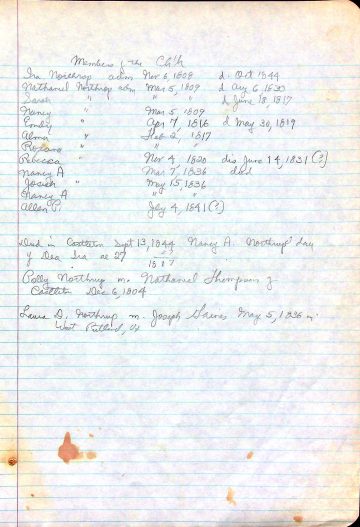 Members of the Ch'h
Ira Northrop adm Nov 6, 1808 d. Oct 1844
Nathaniel Northrop adm Mar 5, 1809 d Aug 6, 1830
Sarah " " " d June 18, 1817
Nancy " Mar 5, 1809
Emily " Apr 7, 1816 d May 30, 1819
Alma " Feb 2, 1817
" " "
Rebecca " Nov 4, 1820 dis June 14, 1831 (?)
Nancy A Mar 7, 1836 died
Josiah " May 15, 1836
Nancy A " "
Allen P. July 4, 1841 (?)
Died in Castleton Sept 13, 1844 Nancy A. Northrup day
of Dea Ira ae 27
1817
Polly Northrup m. Nathaniel Thompson of
Castleton Dec 6, 1804
Laura D. Northrup m. Joseph May 5, 1836 in
West Rutland, Vt